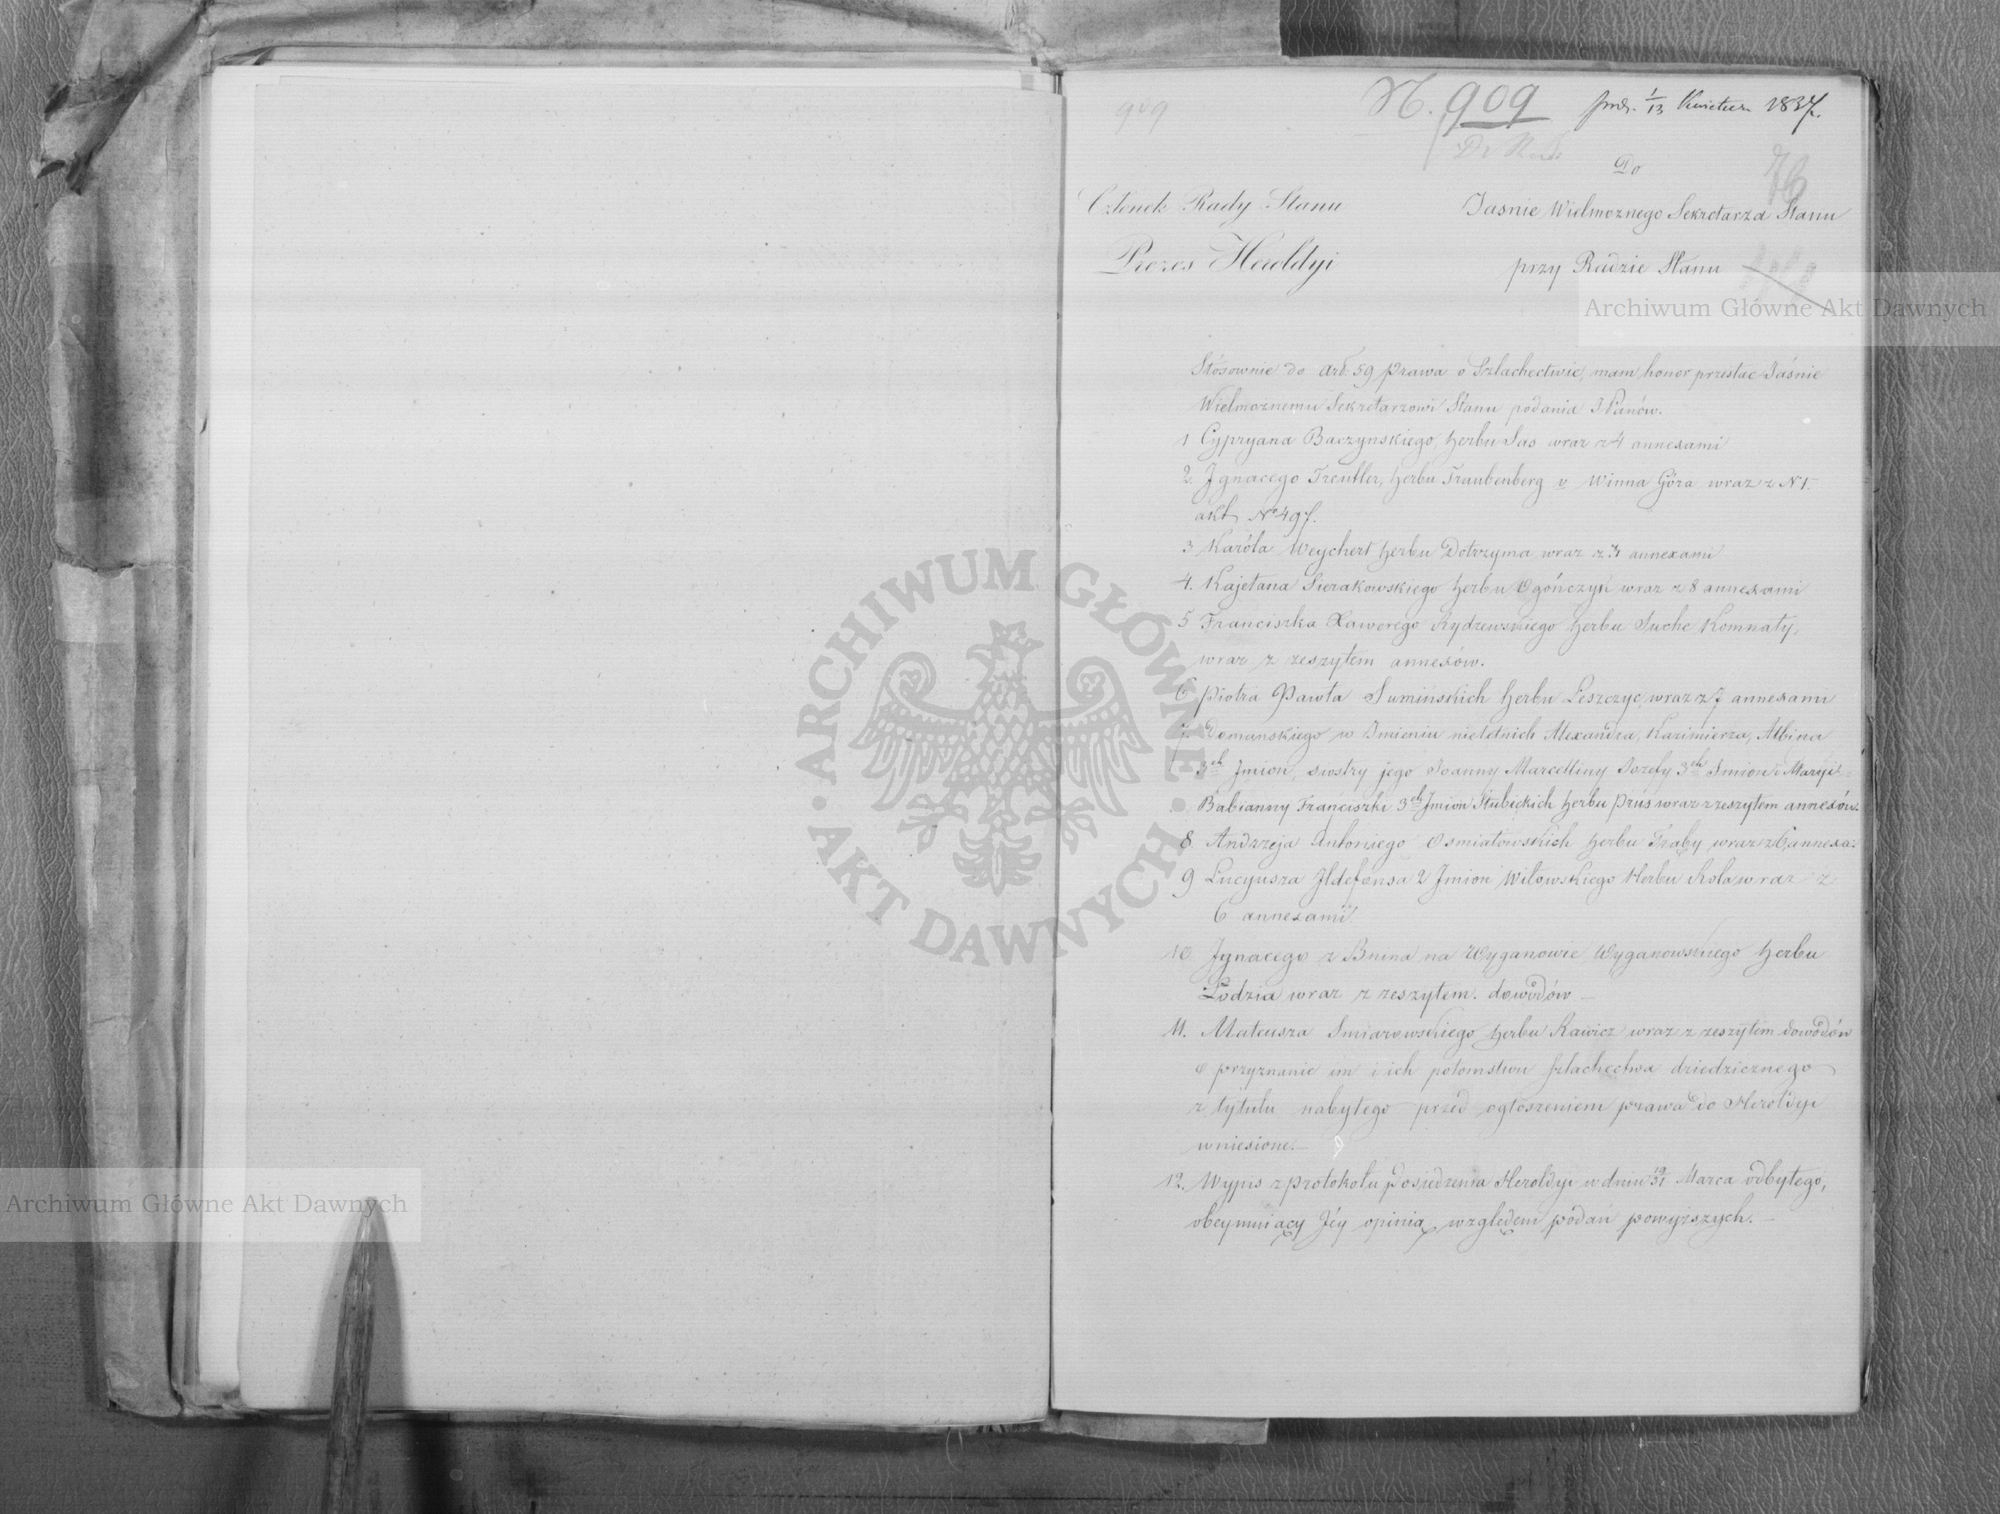 909
N. 909 1/13 Kwietnia 1837.
Do
76
Członek Rady Stanu
Jaśnie Wielmożnego Sekretarza Stanu
Prezes Heroldyi
przy Radzie Stanu
Archiwum Główne Akt Dawnych
Stósownie do Art. 59 Prawa o Szlachectwie, mam honor przesłać Jaśnie
Wielmożnemu Sekretarzowi Stanu podania JPanów.
1 Cypryana Baczynskiego, herbu Sas wraz z 4 annexami
2. Jgnacego Treutler, herbu Traubenberg v Winna Góra wraz z N 1.
akt No 497.
3 Karóla Weychert herbu Dotrzyma wraz z annexami
4. Kajetana Sierakowskiego herbu Ogończyk wraz z 8 annexami
5 Franciszka Xawerego Rydzewskiego herbu Suche Komnaty,
wraz z zeszytem annexów.
6 Piotra Pawła Sumińskich herbu Leszczyc, wraz z 7 annexami
7. Domanskiego w Jmieniu nieletnich Alexandra, Kazimierza, Albina
3ch Jmion, siostry jego Joanny Marcelliny Jozefy 3ch Jmion i Maryi
Babianny Franciszki 3ch Jmion Słubickich herbu Prus wraz z zeszytem annexów.
8. Andrzeja Antoniego Osmiałowskich herbu Trąby wraz z 6 annexa:
9 Lucyusza Jldefonsa 2 Jmion Witowskiego Herbu Rola wraz z
6 annexami.
10 Jgnacego z Bnina na Wyganowie Wyganowskiego herbu
Łodzia wraz z zeszytem dowodów —
11. Mateusza Smiarowskiego herbu Rawicz wraz z zeszytem dowodów
o przyznanie im i ich potomstwu szlachectwa dziedzicznego
z tytułu nabytego przed ogłoszeniem prawa do Heroldyi
wniesione. —
12. Wypis z protokołu posiedzenia Heroldyi w dniu 19/31 Marca odbytego,
obeymuiący Jéy opinią względem podań powyższych. —
Archiwum Główne Akt Dawnych
ARCHIWUM GŁÓWNE AKT DAWNYCH